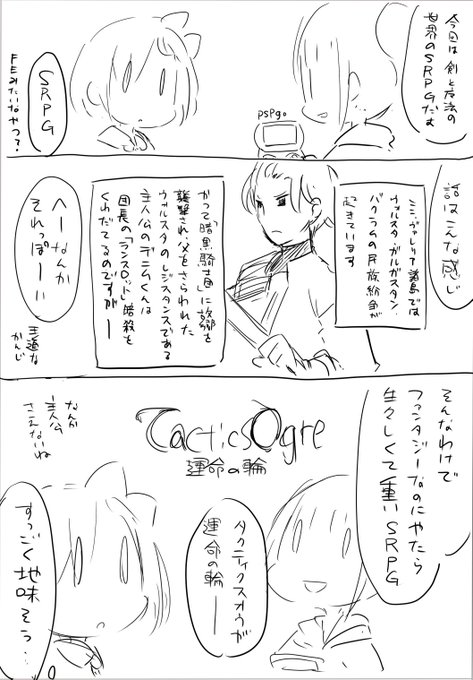 今回は剣と魔法の
世界のSRPGだむ
pspgo
SRPG
FEみたいなやつ?
話はこんな感じ
ここヴァレリア諸島では
ウォルスタ・ガルガスタン
バクラムの民族紛争が
起きています
かつて「暗黒騎士団」に故郷を
襲撃され父をさらわれた
ウォルスタのレジスタンスである
主人公のデニムくんは
団長の「ランスロット」暗殺を
くわだてるのですが―
へーなんか
それっぽーい
王道な
かんじ
そんなわけで
ファンタジーなのにやたら
生々しくて重いSRPG
TacticsOgre
運命の輪
タクティクスオウガ
運命の輪――
なんか
主人公
さえないね
すっごく地味そう…